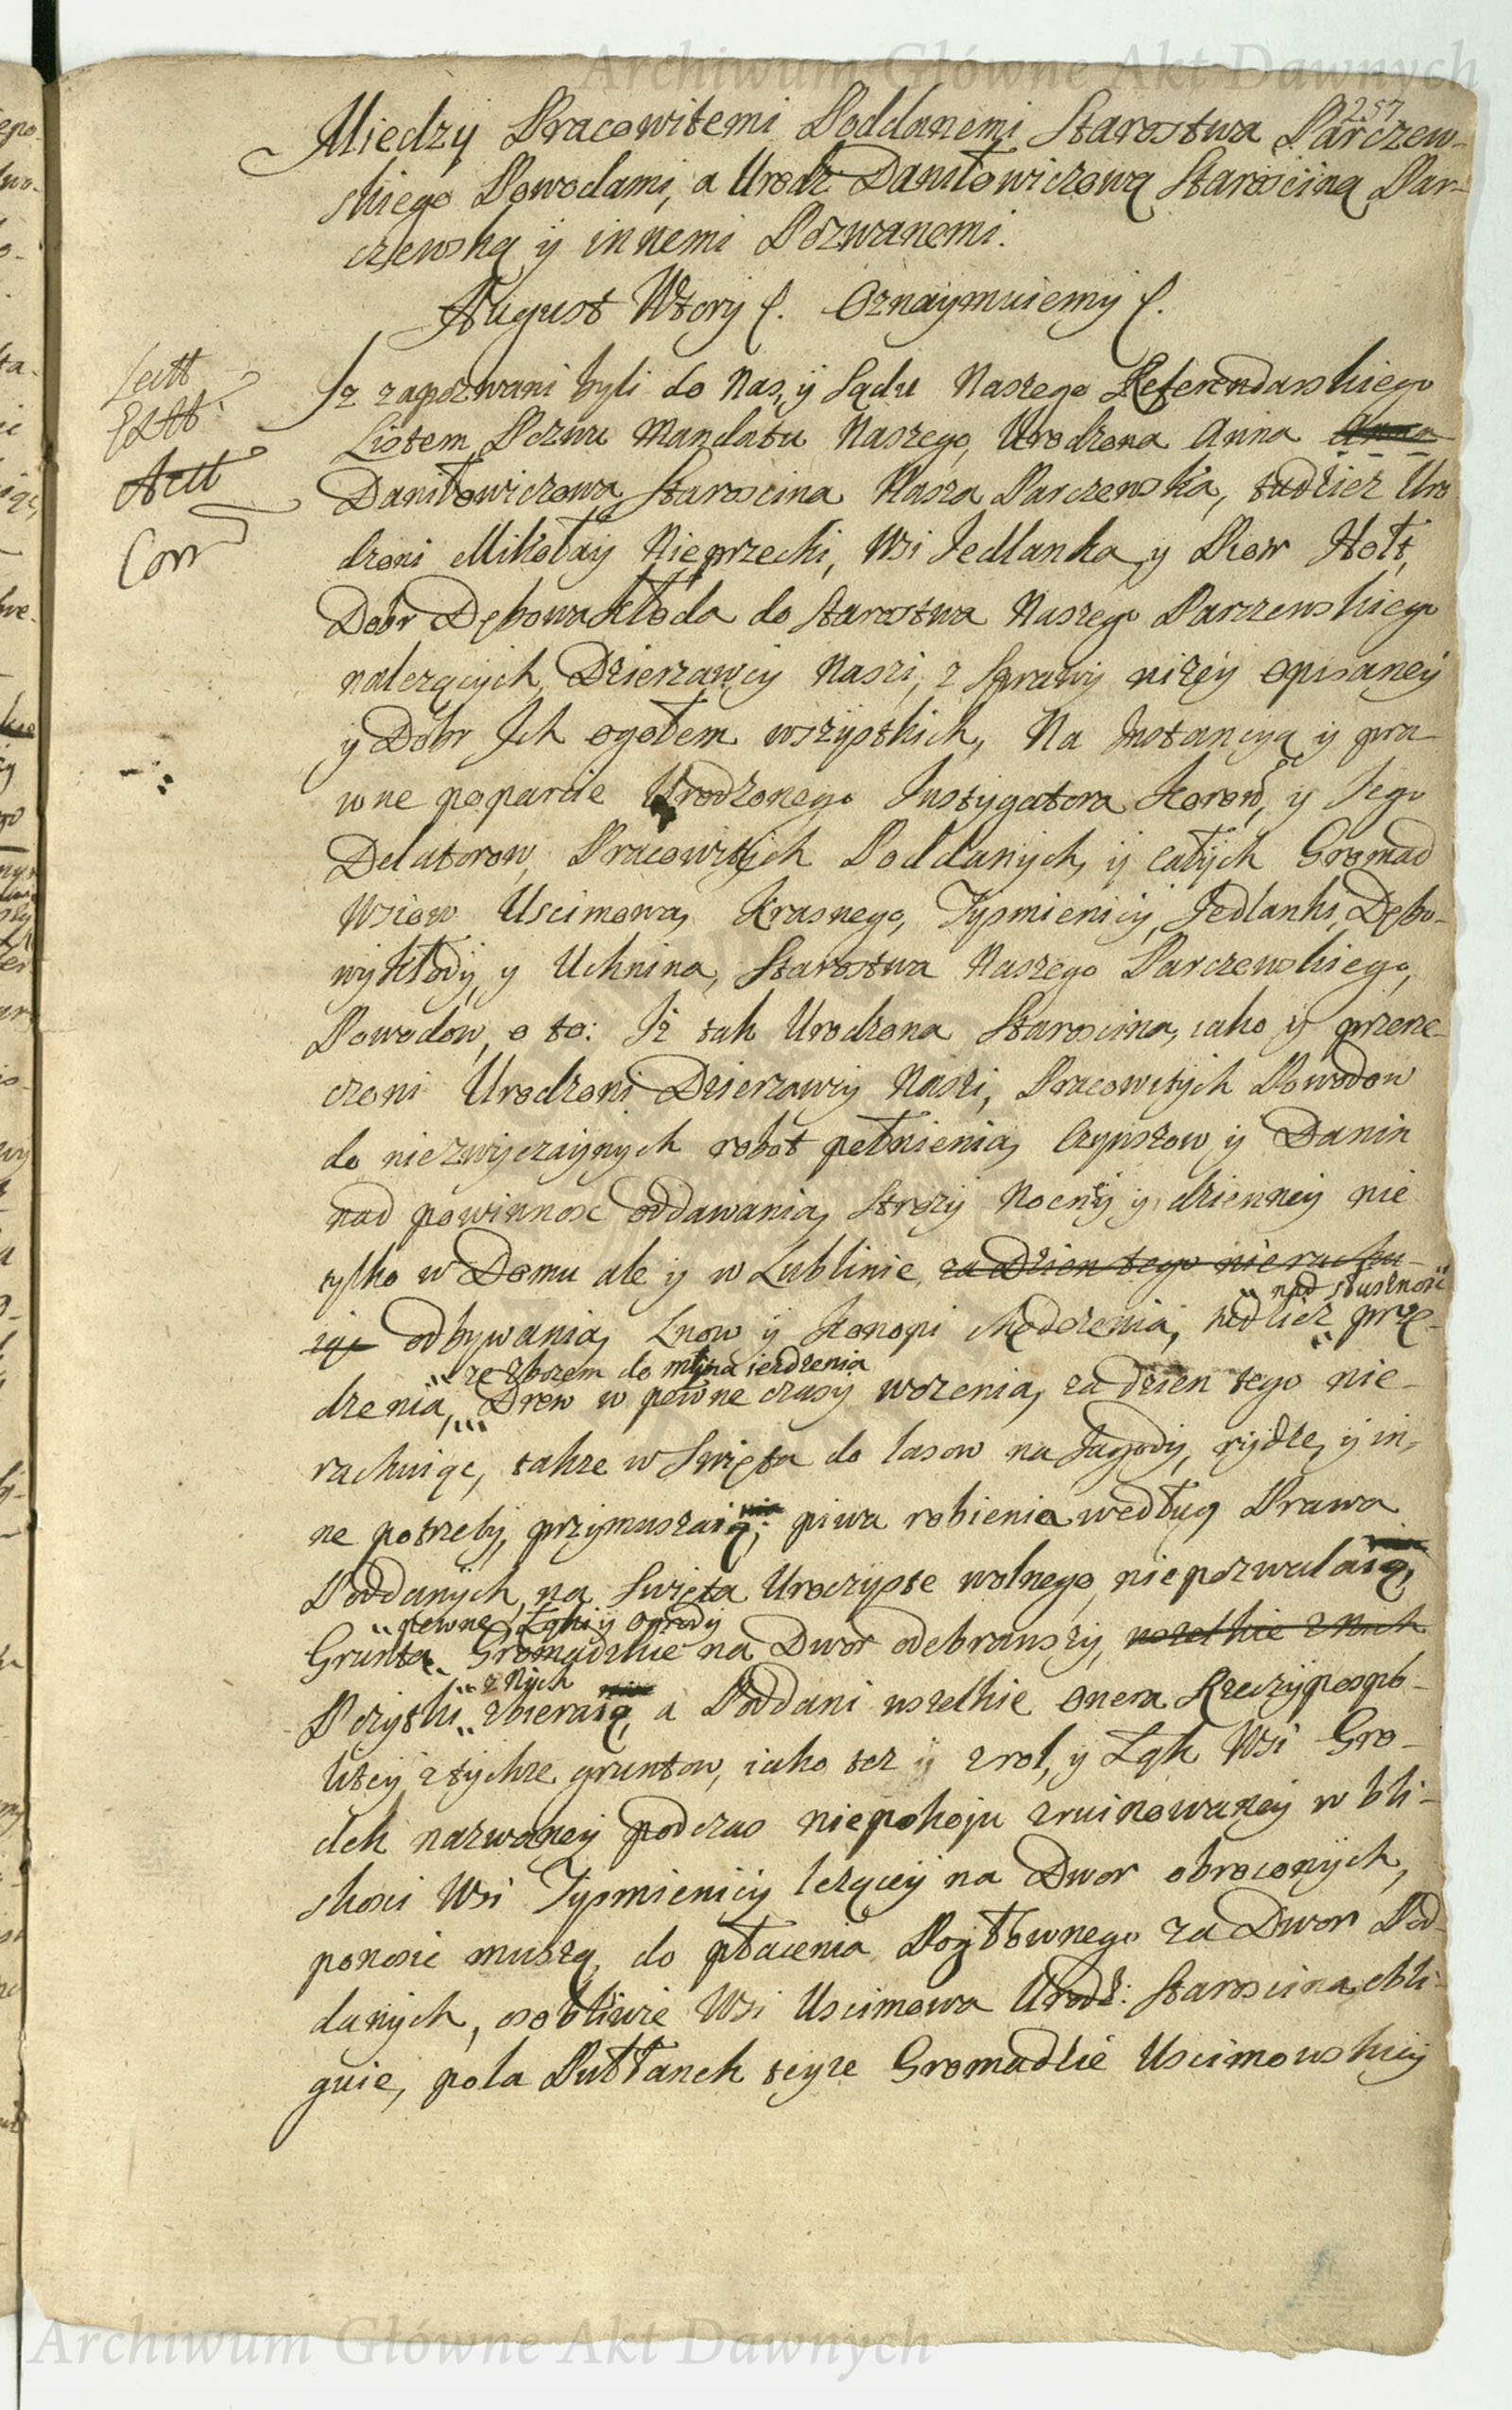 Archiwum Główne Akt Dawnych
257
Miedzy Pracowitemi Poddanemi Starostwa Parczew-
skiego Powodami, a Urodz Daniłowiczową Starościną Par-
czewską ÿ innemi Pozwanemi.
August Wtory &. Oznaymuiemy &.
Lectt
Extt
Actt
Corr
Iz zapozwani byli do Nas, ÿ Sądu Naszego Referendarskiego
Listem Pozwu Mandatu Naszego, Urodzona Anna Anna
Daniłowiczowa Staroscina Nasza Parczewska, tudziez Uro
dzeni Mikołaÿ Nieprzecki, Wsi Jedlanka, y Piotr Holt,
Dobr Dębowa Kłoda do Starostwa Naszego Parczewskiego
nalezących Dzierzawcÿ Nasi, z Sprawÿ niżeÿ opisaneÿ
ÿ Dobr Ich ogołem wszÿstkich, Na Instancÿą ÿ pra-
wne poparcie Urodzonego Instÿgatora Koron, y Jego
Delatorow, Pracowitÿch Poddanÿch, ÿ całÿch Gromad
Wsiow Uscimowa, Krasnego, Tÿsmienicÿ, Jedlanki, Dębo-
wÿ Kłodÿ, y Uchnina, Starostwa Naszego Parczewskiego,
Powodow, o to: Iż tak Urodzona Starościna, iako y przerze-
czeni Urodzeni Dzierzawcÿ Nasi, Pracowitÿch Powodow
do niezwÿczaÿnÿch robot pełnienia, Czynszow ÿ Danin
nad powinnosc oddawania, Strożÿ Nocnÿ ÿ dzienneÿ nie
tylko w Domu ale y w Lublinie, za Dzien tego nierachu-
iąc odbywania, Lnow ÿ Konopi chędożenia, tudziez nad słusznośc prze-
dzenia, ze zbozem do młyna iezdzenia Drew w pewne czasÿ wozenia, za dzien tego nie-
rachuiąc, takze w Swięta do lasow na Jagodÿ, rÿdze, ÿ in-
ne potrzebÿ, przÿmuszaią; piwa robienia według Prawa
Poddanÿch na Swięta Uroczÿste wolnego, niepozwalaią,
Grunta pewne, Łąki ÿ Ogrodÿ Gromadzkie na Dwor odebrawszÿ, wszelkie z Nich
Pożÿtki z Nÿch zbieraią, a Poddani wszelkie onera Rzeczÿpospo-
liteÿ z tÿchze gruntow, iako tez ÿ z rol, y Łąk Wsi Gro-
dek nazwaneÿ podczas niepokoju zruinowaneÿ w bli-
skosci Wsi Tÿsmienicÿ leząceÿ na Dwor obroconÿch,
ponosic muszą, do płacenia Pogłownego za Dwor Pod-
danÿch, osobliwie Wsi Uscimowa Urodz: Starościna obli-
guie, pola Pułłanek teÿze Gromadzie Uscimowskieÿ
Archiwum Główne Akt Dawnych